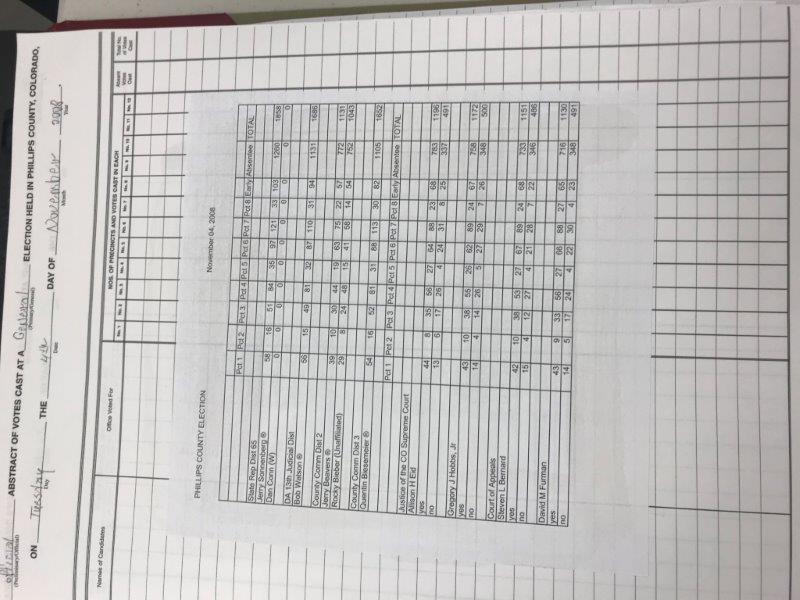 Official ABSTRACT OF VOTES CAST AT A General ELECTION HELD IN PHILLIPS COUNTY, COLORADO,
(Preliminary/Official) (Primary/General)
ON Tuesday THE 4th DAY OF November 2008.
Day Date Month Year
NOS. OF PRECINCTS AND VOTES CAST IN EACH
Names of Candidates Office Voted For No. 1 No. 2 No. 3 No. 4 No. 5 No. 6 No. 7 No. 8 No. 9 No. 10 No. 11 No. 12 Absent Votes Cast Total No. of Votes Cast
PHILLIPS COUNTY ELECTION November 04, 2008
Pct 1 Pct 2 Pct 3 Pct 4 Pct 5 Pct 6 Pct 7 Pct 8 Early Absentee TOTAL
State Rep Dist 65
Jerry Sonnenberg ® 58 16 51 84 35 97 121 33 103 1260 1858
Dan Conn (W) 0 0 0 0 0 0 0 0 0 0 0
DA 13th Judicial Dist
Bob Watson ® 56 15 49 81 32 87 110 31 94 1131 1686
County Comm Dist 2
Jerry Beavers ® 39 10 30 44 19 63 75 22 57 772 1131
Rocky Bieber (Unaffiliated) 29 8 24 48 15 41 58 14 54 752 1043
County Comm Dist 3
Quentin Biesemeier ® 54 16 52 81 31 88 113 30 82 1105 1652
Pct 1 Pct 2 Pct 3 Pct 4 Pct 5 Pct 6 Pct 7 Pct 8 Early Absentee TOTAL
Justice of the CO Supreme Court
Allison H Eid
yes 44 8 35 56 27 64 88 23 68 783 1196
no 13 6 17 26 4 24 31 8 25 337 491
Gregory J Hobbs, Jr
yes 43 10 38 55 26 62 89 24 67 758 1172
no 14 4 14 26 5 27 29 7 26 348 500
Court of Appeals
Steven L Bernard
yes 42 10 38 53 27 67 89 24 68 733 1151
no 15 4 12 27 4 21 28 7 22 346 486
David M Furman
yes 43 9 33 56 27 66 88 27 65 716 1130
no 14 5 17 24 4 22 30 4 23 348 491